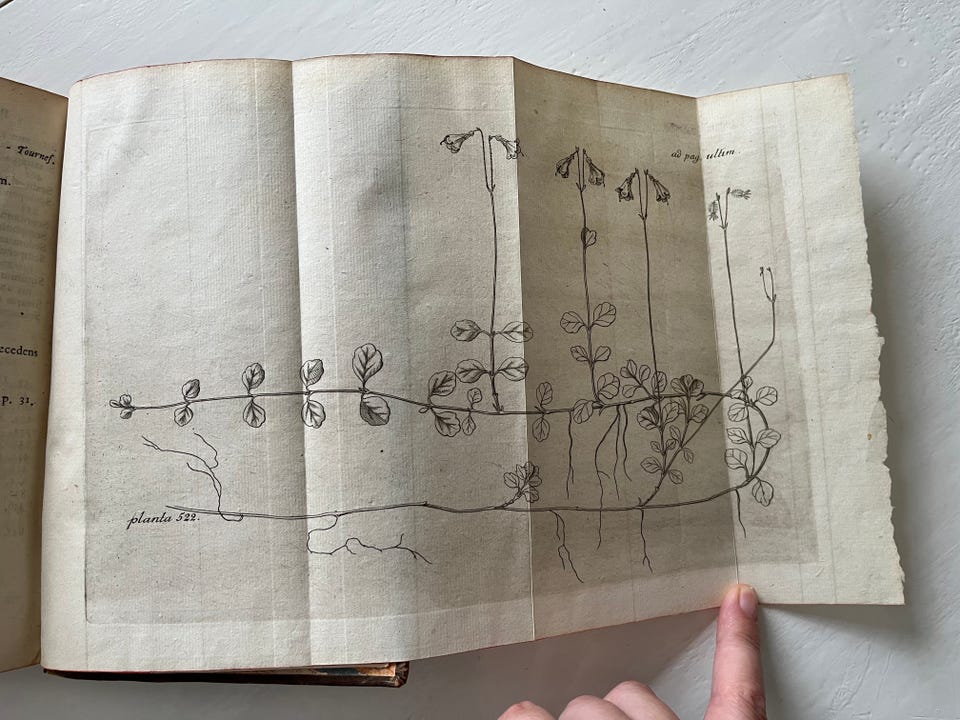 - Tournef.
m.
ecedens
p. 31.
ad pag. ultim.
planta 522.